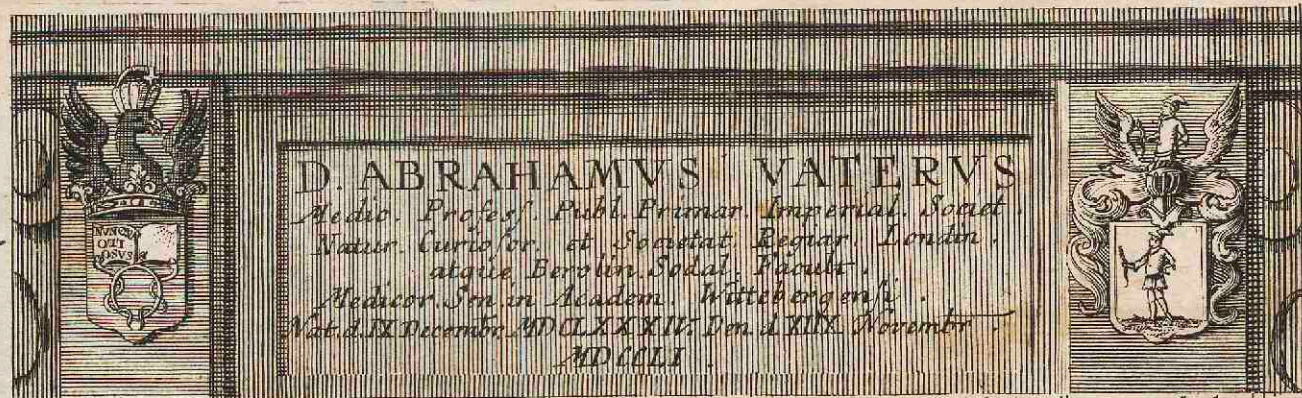 NVNQVA
OTI
OSVS
D. ABRAHAMVS VATERVS
Medic. Professſ Publ. Primar. Imperial. Societ.
Natur. Curioſor. et Societat. Regiar. Londin.
atque Berolin. Sodal. Facult
Medicor. Sen in Academ. Wittebergenſi.
Nat. d. IX Decembr. MDCLXXXIV. Den. d. XIIX. Novembr.
MDCCLI.